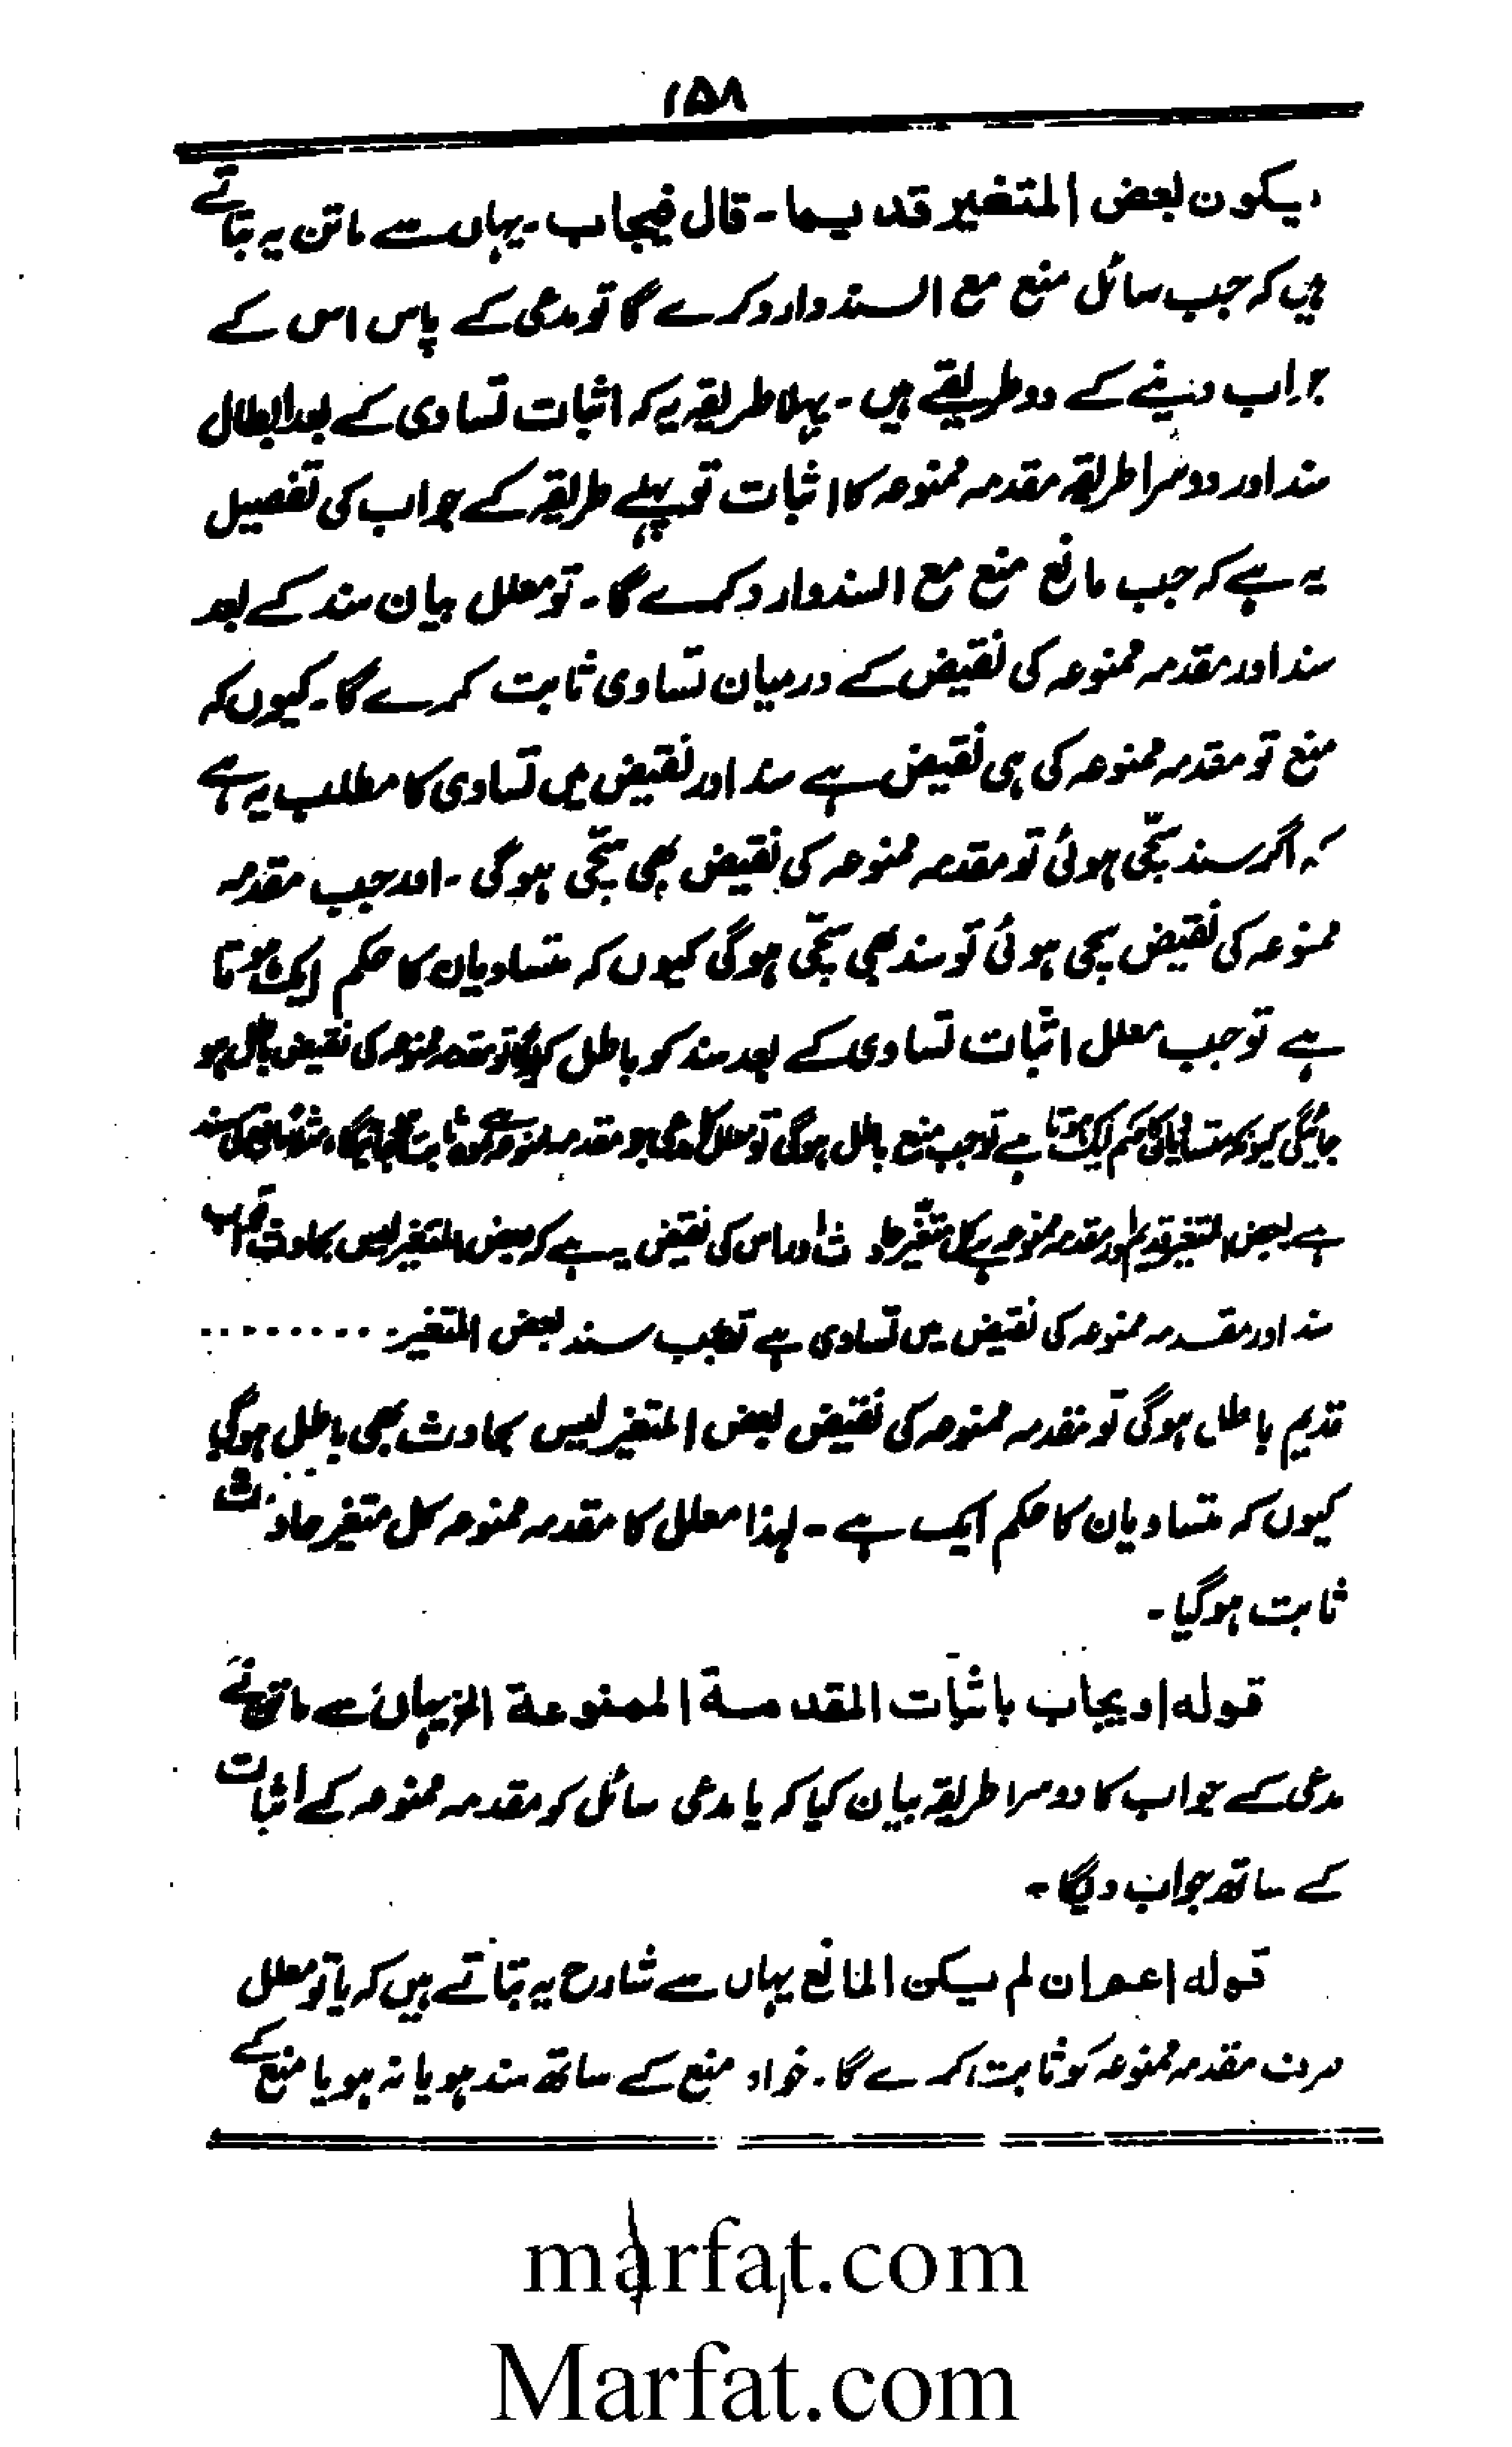 ۱۵۸
دیکون بعض المتغیر قدیما۔ قال فیجاب۔ یہاں سے ماتن یہ بتاتے
ہیں کہ جب سائل منع مع السند وارد کرے گا تو مدعی کے پاس اس کے
جواب دینے کے دو طریقے ہیں۔ پہلا طریقہ یہ کہ اثبات تساوی کے بعد ابطال
سند اور دوسرا طریقہ مقدمہ ممنوعہ کا اثبات تو پہلے طریقہ کے جواب کی تفصیل
یہ ہے کہ جب مانع منع مع السند وارد کرے گا۔ تو معلل بیان سند کے بعد
سند اور مقدمہ ممنوعہ کی نقیض کے درمیان تساوی ثابت کرے گا۔ کیوں کہ
منع تو مقدمہ ممنوعہ کی ہی نقیض ہے سند اور نقیض میں تساوی کا مطلب یہ ہے
کہ اگر سند سچی ہوئی تو مقدمہ ممنوعہ کی نقیض بھی سچی ہوگی۔ اور جب مقدمہ
ممنوعہ کی نقیض سچی ہوئی تو سند بھی سچی ہوگی کیوں کہ متساویان کا حکم ایک ہوتا
ہے تو جب معلل اثبات تساوی کے بعد سند کو باطل کریگا تو مقدمہ ممنوعہ کی نقیض باطل ہو
جائیگی کیونکہ متساویان کا حکم ایک ہوتا ہے تو جب منع باطل ہوگی تو معلل کا مدعی جو مقدمہ ممنوعہ ہے
ہے بعض المتغیر قدیم اور مقدمہ ممنوعہ ہے کل متغیر حادث اور اس کی نقیض یہ ہے کہ بعض المتغیر لیس بحادث تو اب
سند اور مقدمہ ممنوعہ کی نقیض میں تساوی ہے تو جب سند بعض المتغیر ..........
قدیم باطل ہوگی تو مقدمہ ممنوعہ کی نقیض بعض المتغیر لیس بحادث بھی باطل ہوگی
کیوں کہ متساویان کا حکم ایک ہے۔ لہذا معلل کا مقدمہ ممنوعہ کل متغیر حادث
ثابت ہوگیا۔
قولہ اویجاب باثبات المقدمة الممنوعة الخ یہاں سے ماتن نے
مدعی کے جواب کا دوسرا طریقہ بیان کیا کہ یا مدعی سائل کو مقدمہ ممنوعہ کے اثبات
کے ساتھ جواب دیگا۔
قولہ اعم ان لم یکن المانع یہاں سے شارح یہ بتاتے ہیں کہ یا تو معلل
صرف مقدمہ ممنوعہ کو ثابت کرے گا۔ خواہ منع کے ساتھ سند ہو یا نہ ہو یا منع کے
marfat.com
Marfat.com